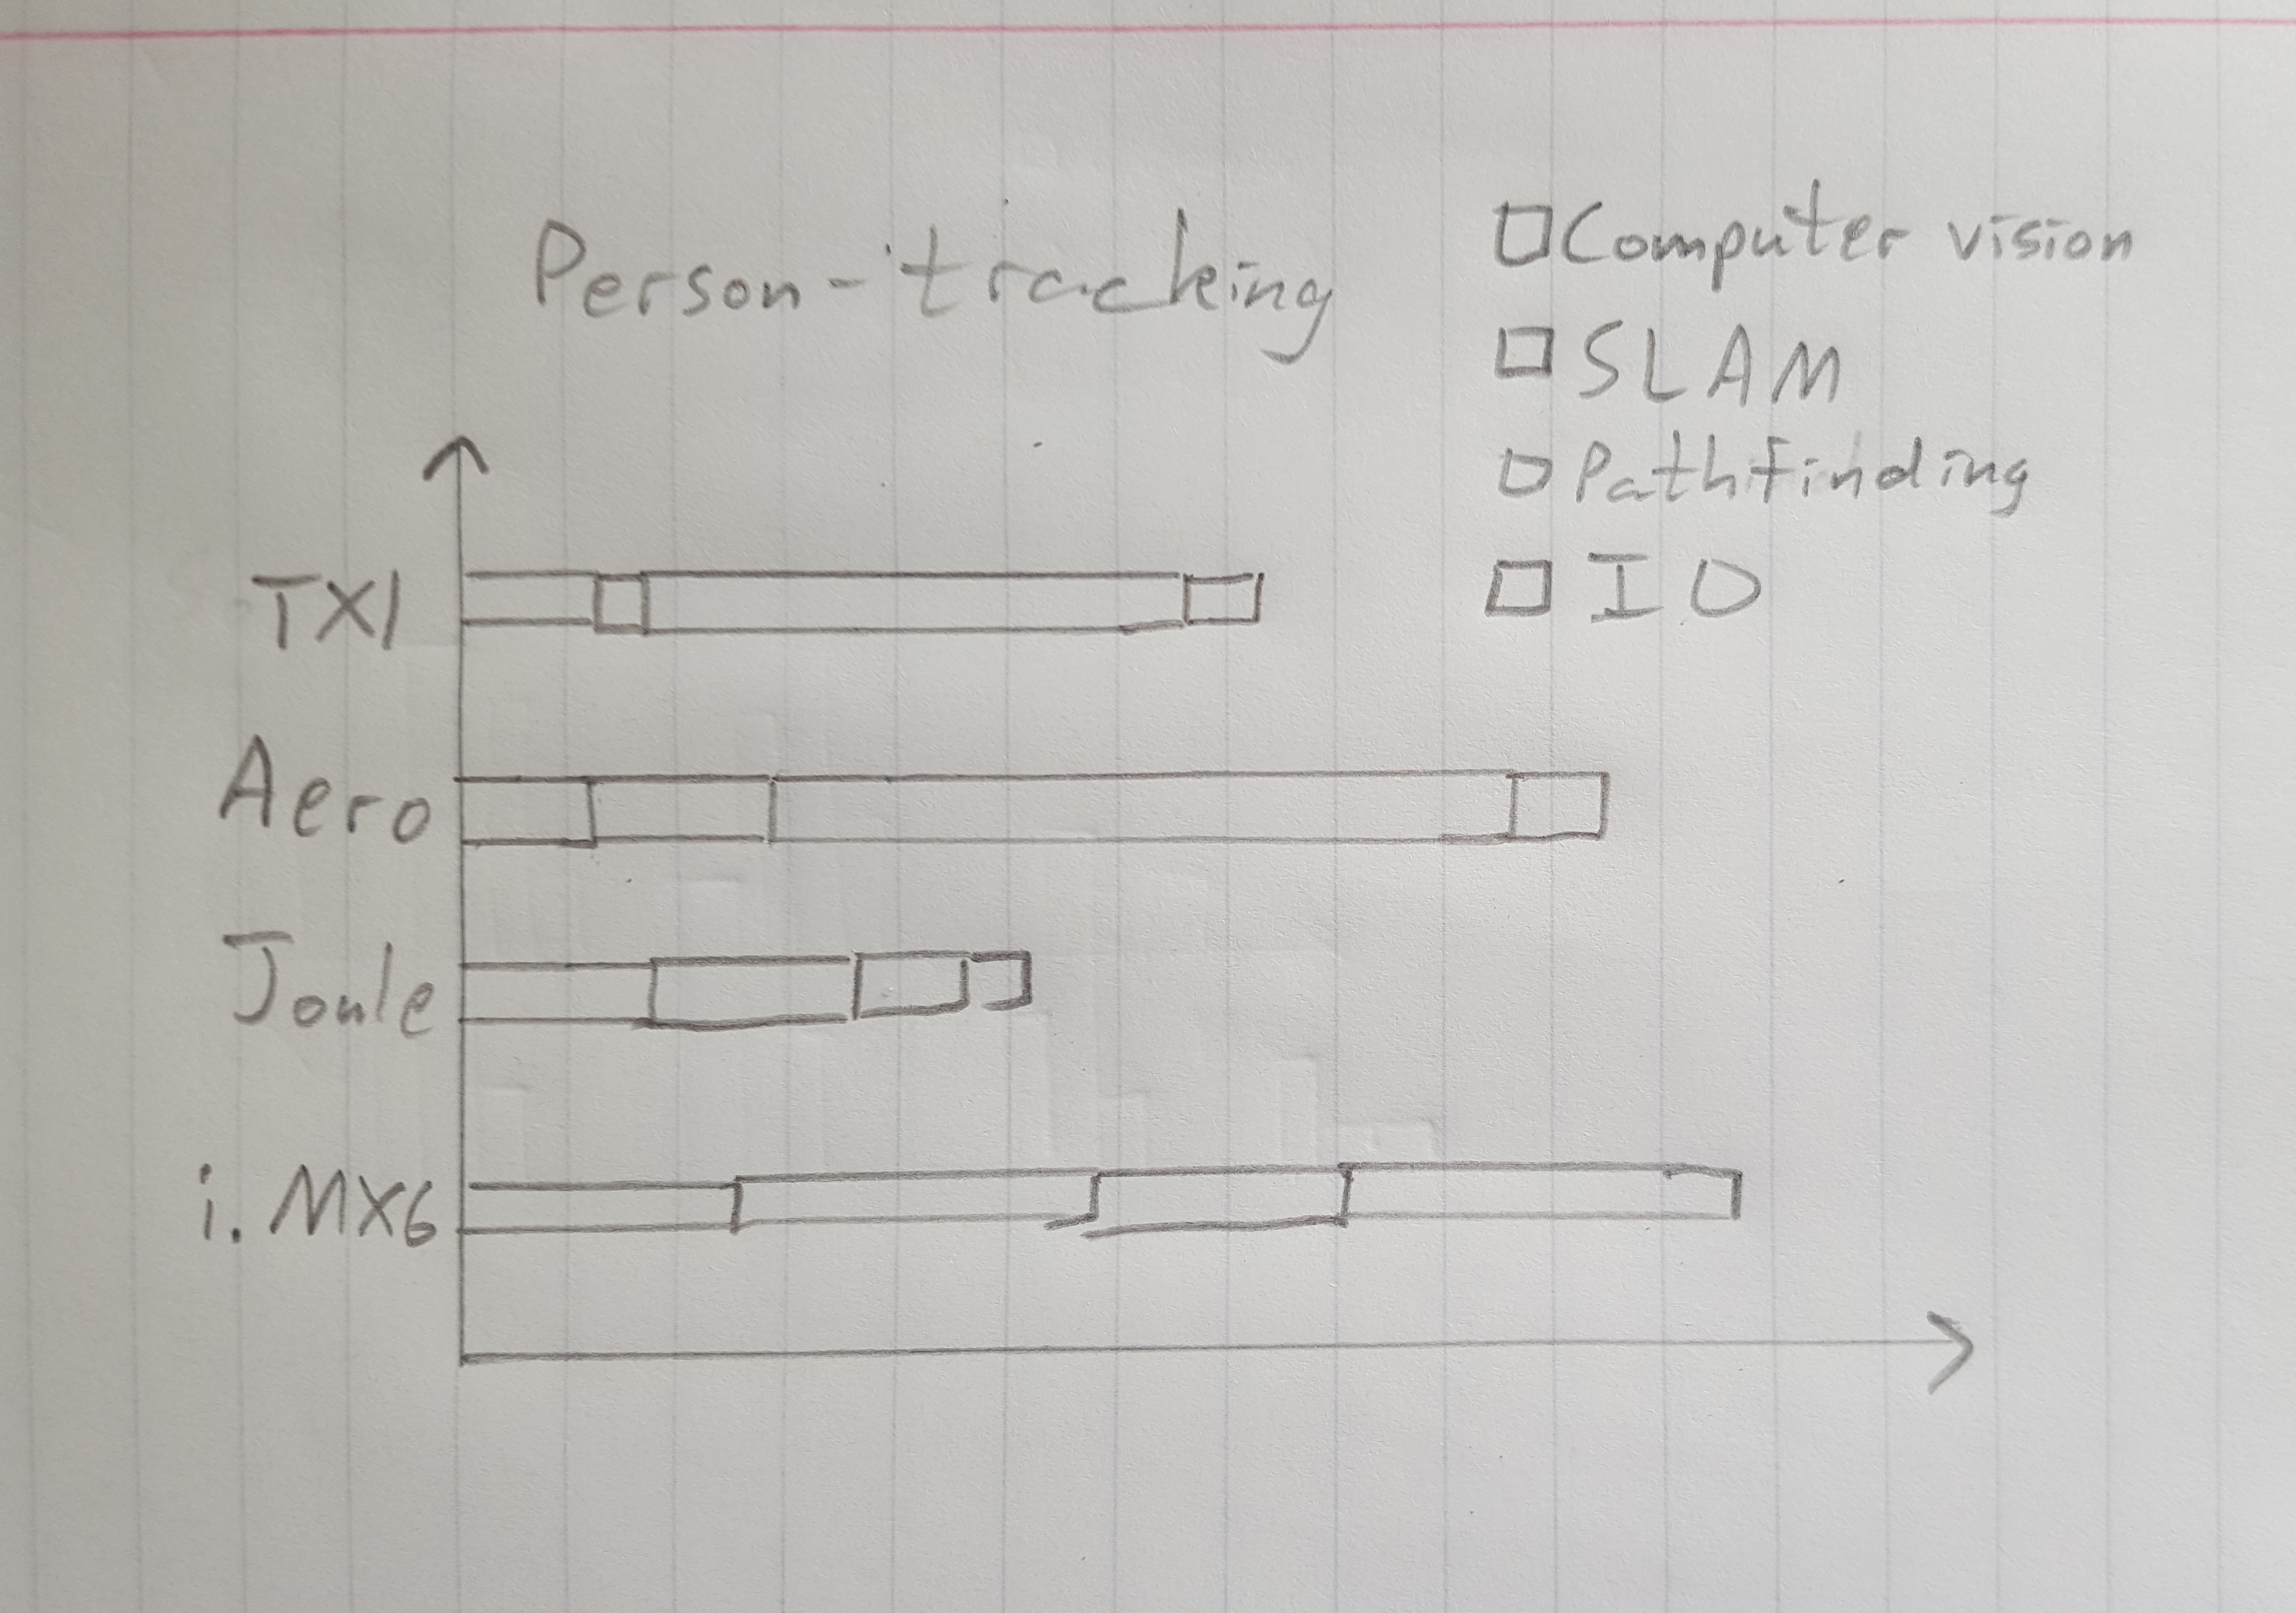 Person-tracking
Computer vision
SLAM
Pathfinding
IO
TX1
Aero
Joule
i.MX6